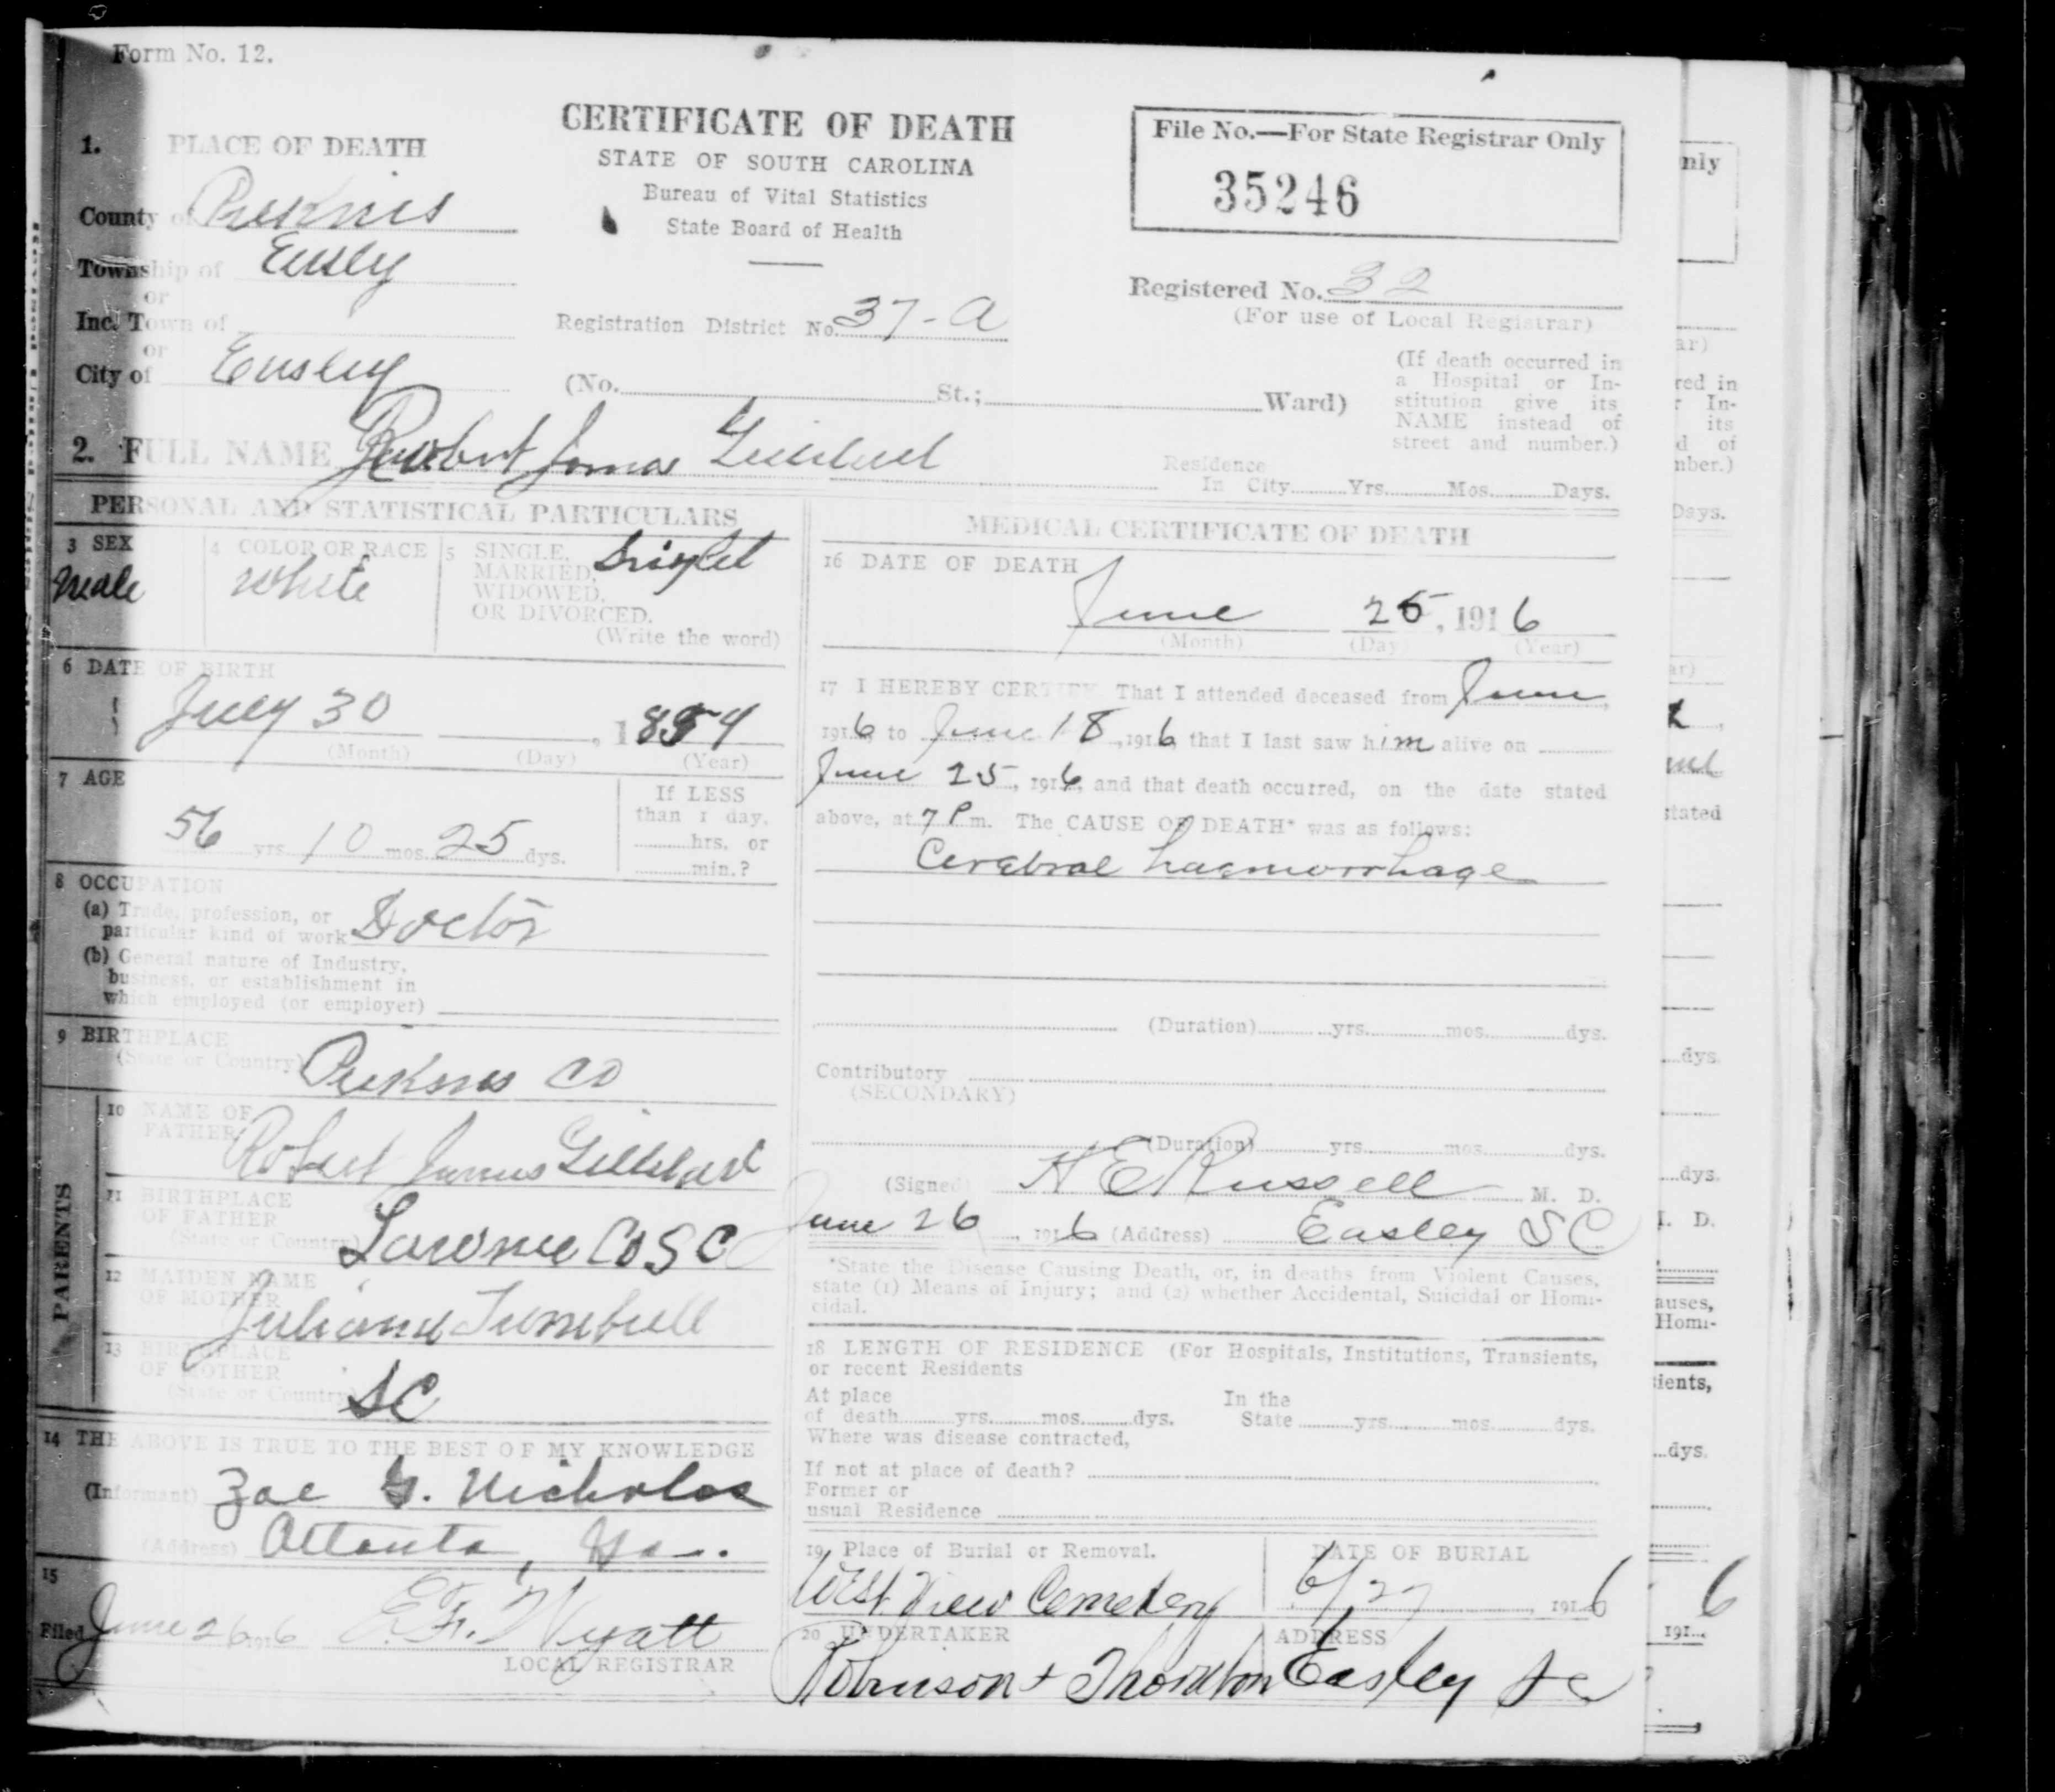 Form No. 12.
CERTIFICATE OF DEATH
STATE OF SOUTH CAROLINA
Bureau of Vital Statistics
State Board of Health
File No.—For State Registrar Only
35246
1. PLACE OF DEATH
County of Pickens
Township of Easley
or
Inc. Town of
or
City of Easley
Registration District No. 37-A
Registered No. 32
(For use of Local Registrar)
(No. St.; Ward)
(If death occurred in
a Hospital or In-
stitution give its
NAME instead of
street and number.)
2. FULL NAME Robert James
Residence
In City Yrs. Mos. Days.
PERSONAL AND STATISTICAL PARTICULARS
3 SEX
Male
4 COLOR OR RACE
White
5 SINGLE,
MARRIED,
WIDOWED,
OR DIVORCED.
(Write the word)
6 DATE OF BIRTH
July 30, 1854
(Month) (Day) (Year)
7 AGE
56 yrs. 10 mos. 25 dys.
If LESS
than 1 day,
hrs. or
min.?
8 OCCUPATION
(a) Trade, profession, or
particular kind of work Doctor
(b) General nature of Industry,
business, or establishment in
which employed (or employer)
9 BIRTHPLACE
(State or Country) Pickens Co
PARENTS
10 NAME OF
FATHER Robert James
11 BIRTHPLACE
OF FATHER
(State or Country) Co S C
12 MAIDEN NAME
OF MOTHER
13 BIRTHPLACE
OF MOTHER
(State or Country) SC
14 THE ABOVE IS TRUE TO THE BEST OF MY KNOWLEDGE
(Informant) Zoe G. Nicholas
(Address) Atlanta, Ga.
15
Filed June 26 1916 E. F. Wyatt
LOCAL REGISTRAR
MEDICAL CERTIFICATE OF DEATH
16 DATE OF DEATH
June 25, 1916
(Month) (Day (Year)
17 I HEREBY CERTIFY, That I attended deceased from June,
1916 to June 18, 1916, that I last saw him alive on
June 25, 1916, and that death occurred, on the date stated
above, at 7 P m. The CAUSE OF DEATH* was as follows:
Cerebral haemorrhage
(Duration) yrs. mos. dys.
Contributory
(SECONDARY)
(Duration) yrs. mos. dys.
(Signed) H E Russell M. D.
June 26, 1916 (Address) Easley S C
*State the Disease Causing Death, or, in deaths from Violent Causes,
state (1) Means of Injury; and (2) whether Accidental, Suicidal or Homi-
cidal.
18 LENGTH OF RESIDENCE (For Hospitals, Institutions, Transients,
or recent Residents
At place
of death yrs. mos. dys.
In the
State yrs. mos. dys.
Where was disease contracted,
If not at place of death?
Former or
usual Residence
19 Place of Burial or Removal.
West View Cemetery
DATE OF BURIAL
6/27, 1916
20 UNDERTAKER
Robinson + Thornton
ADDRESS
Easley S C